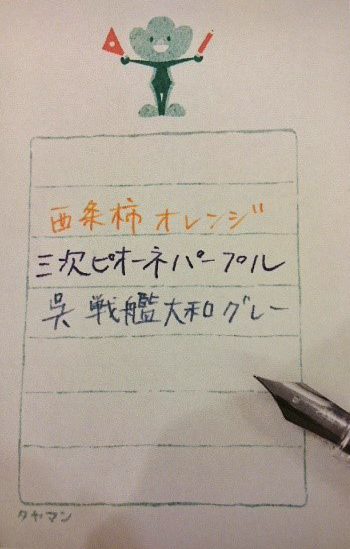 西条柿オレンジ
三次ピオーネパープル
呉 戦艦大和グレー
タヤマン